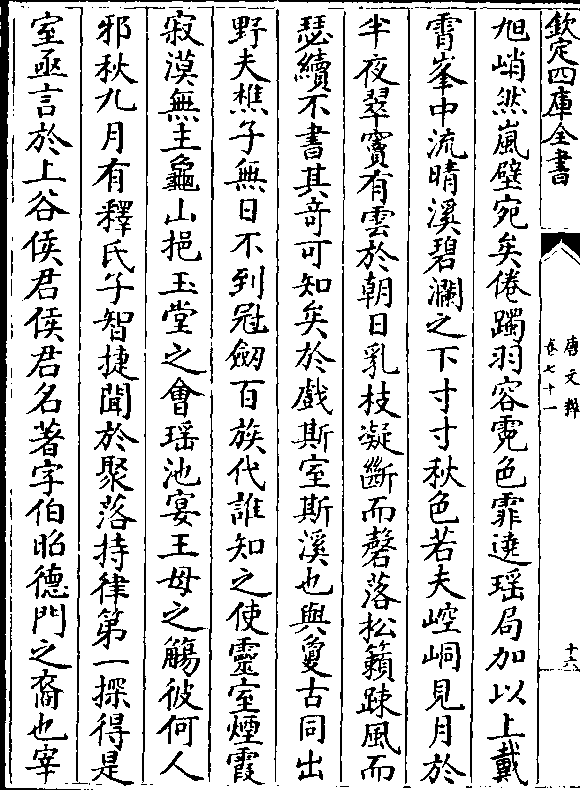 欽定四庫全書
唐文粹
卷七十一
十六
旭峭然嵐壁宛矣倦躅羽容霓色霏遶瑶局加以上戴
霄峯中流晴溪碧瀾之下寸寸秋色若夫崆峒見月於
半夜翠竇有雲於朝日乳枝凝斷而磬落松籟踈風而
瑟續不書其竒可知矣於戲斯室斯溪也與敻古同出
野夫樵子無日不到冠劒百族代誰知之使靈室煙霞
寂漠無主龜山挹玉堂之會瑶池宴王母之觴彼何人
邪秋九月有釋氏子智捷聞於聚落持律第一探得是
室亟言於上谷侯君侯君名著字伯昭德門之裔也宰